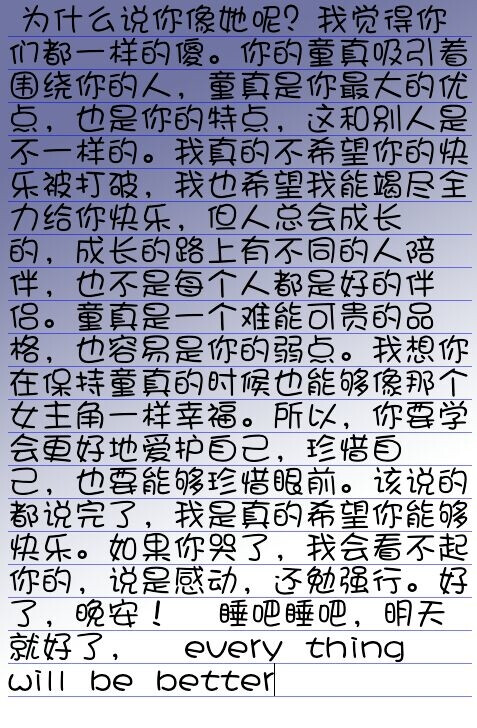 为什么说你像她呢？我觉得你
们都一样的傻。你的童真吸引着
围绕你的人，童真是你最大的优
点，也是你的特点，这和别人是
不一样的。我真的不希望你的快
乐被打破，我也希望我能竭尽全
力给你快乐，但人总会成长
的，成长的路上有不同的人陪
伴，也不是每个人都是好的伴
侣。童真是一个难能可贵的品
格，也容易是你的弱点。我想你
在保持童真的时候也能够像那个
女主角一样幸福。所以，你要学
会更好地爱护自己，珍惜自
己，也要能够珍惜眼前。该说的
都说完了，我是真的希望你能够
快乐。如果你哭了，我会看不起
你的，说是感动，还勉强行。好
了，晚安！ 睡吧睡吧，明天
就好了， every thing
will be better